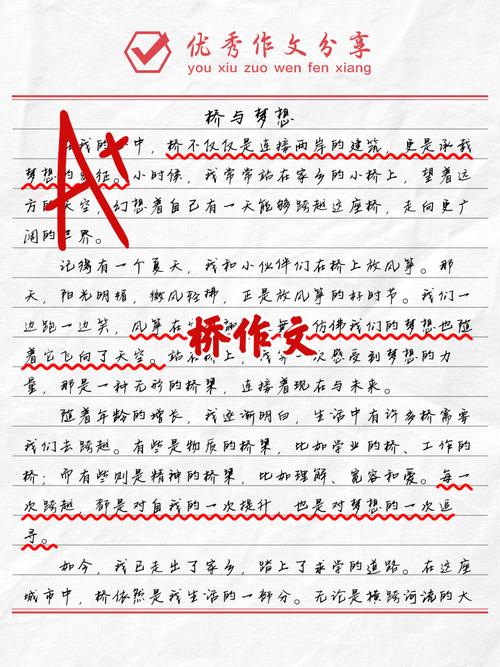 优秀作文分享
you xiu zuo wen fen xiang
桥与梦想
A+
我的 中，桥不仅仅是连接两岸的建筑，更是承载
梦想的 征。小时候，我常常站在家乡的小桥上，望着远
方的 空，幻想着自己有一天能够跨越这座桥，走向更广
阔的世界。
记得有一个夏天，我和小伙伴们在桥上放风筝。那
天，阳光明媚，微风轻拂，正是放风筝的好时节。我们一
边跑一边笑，风筝在 仿佛我们的梦想也随
着它飞向了天空。站 桥上，我 一次感受到梦想的力
桥作文
量，那是一种无形的桥梁，连接着现在与未来。
随着年龄的增长，我逐渐明白，生活中有许多桥需要
我们去跨越。有些是物质的桥梁，比如学业的桥、工作的
桥；而有些则是精神的桥梁，比如理解、宽容和爱。每一
次跨越，都是对自我的一次提升，也是对梦想的一次追
寻。
如今，我已走出了家乡，踏上了求学的道路。在这座
城市中，桥依然是我生活的一部分。无论是横跨河流的大